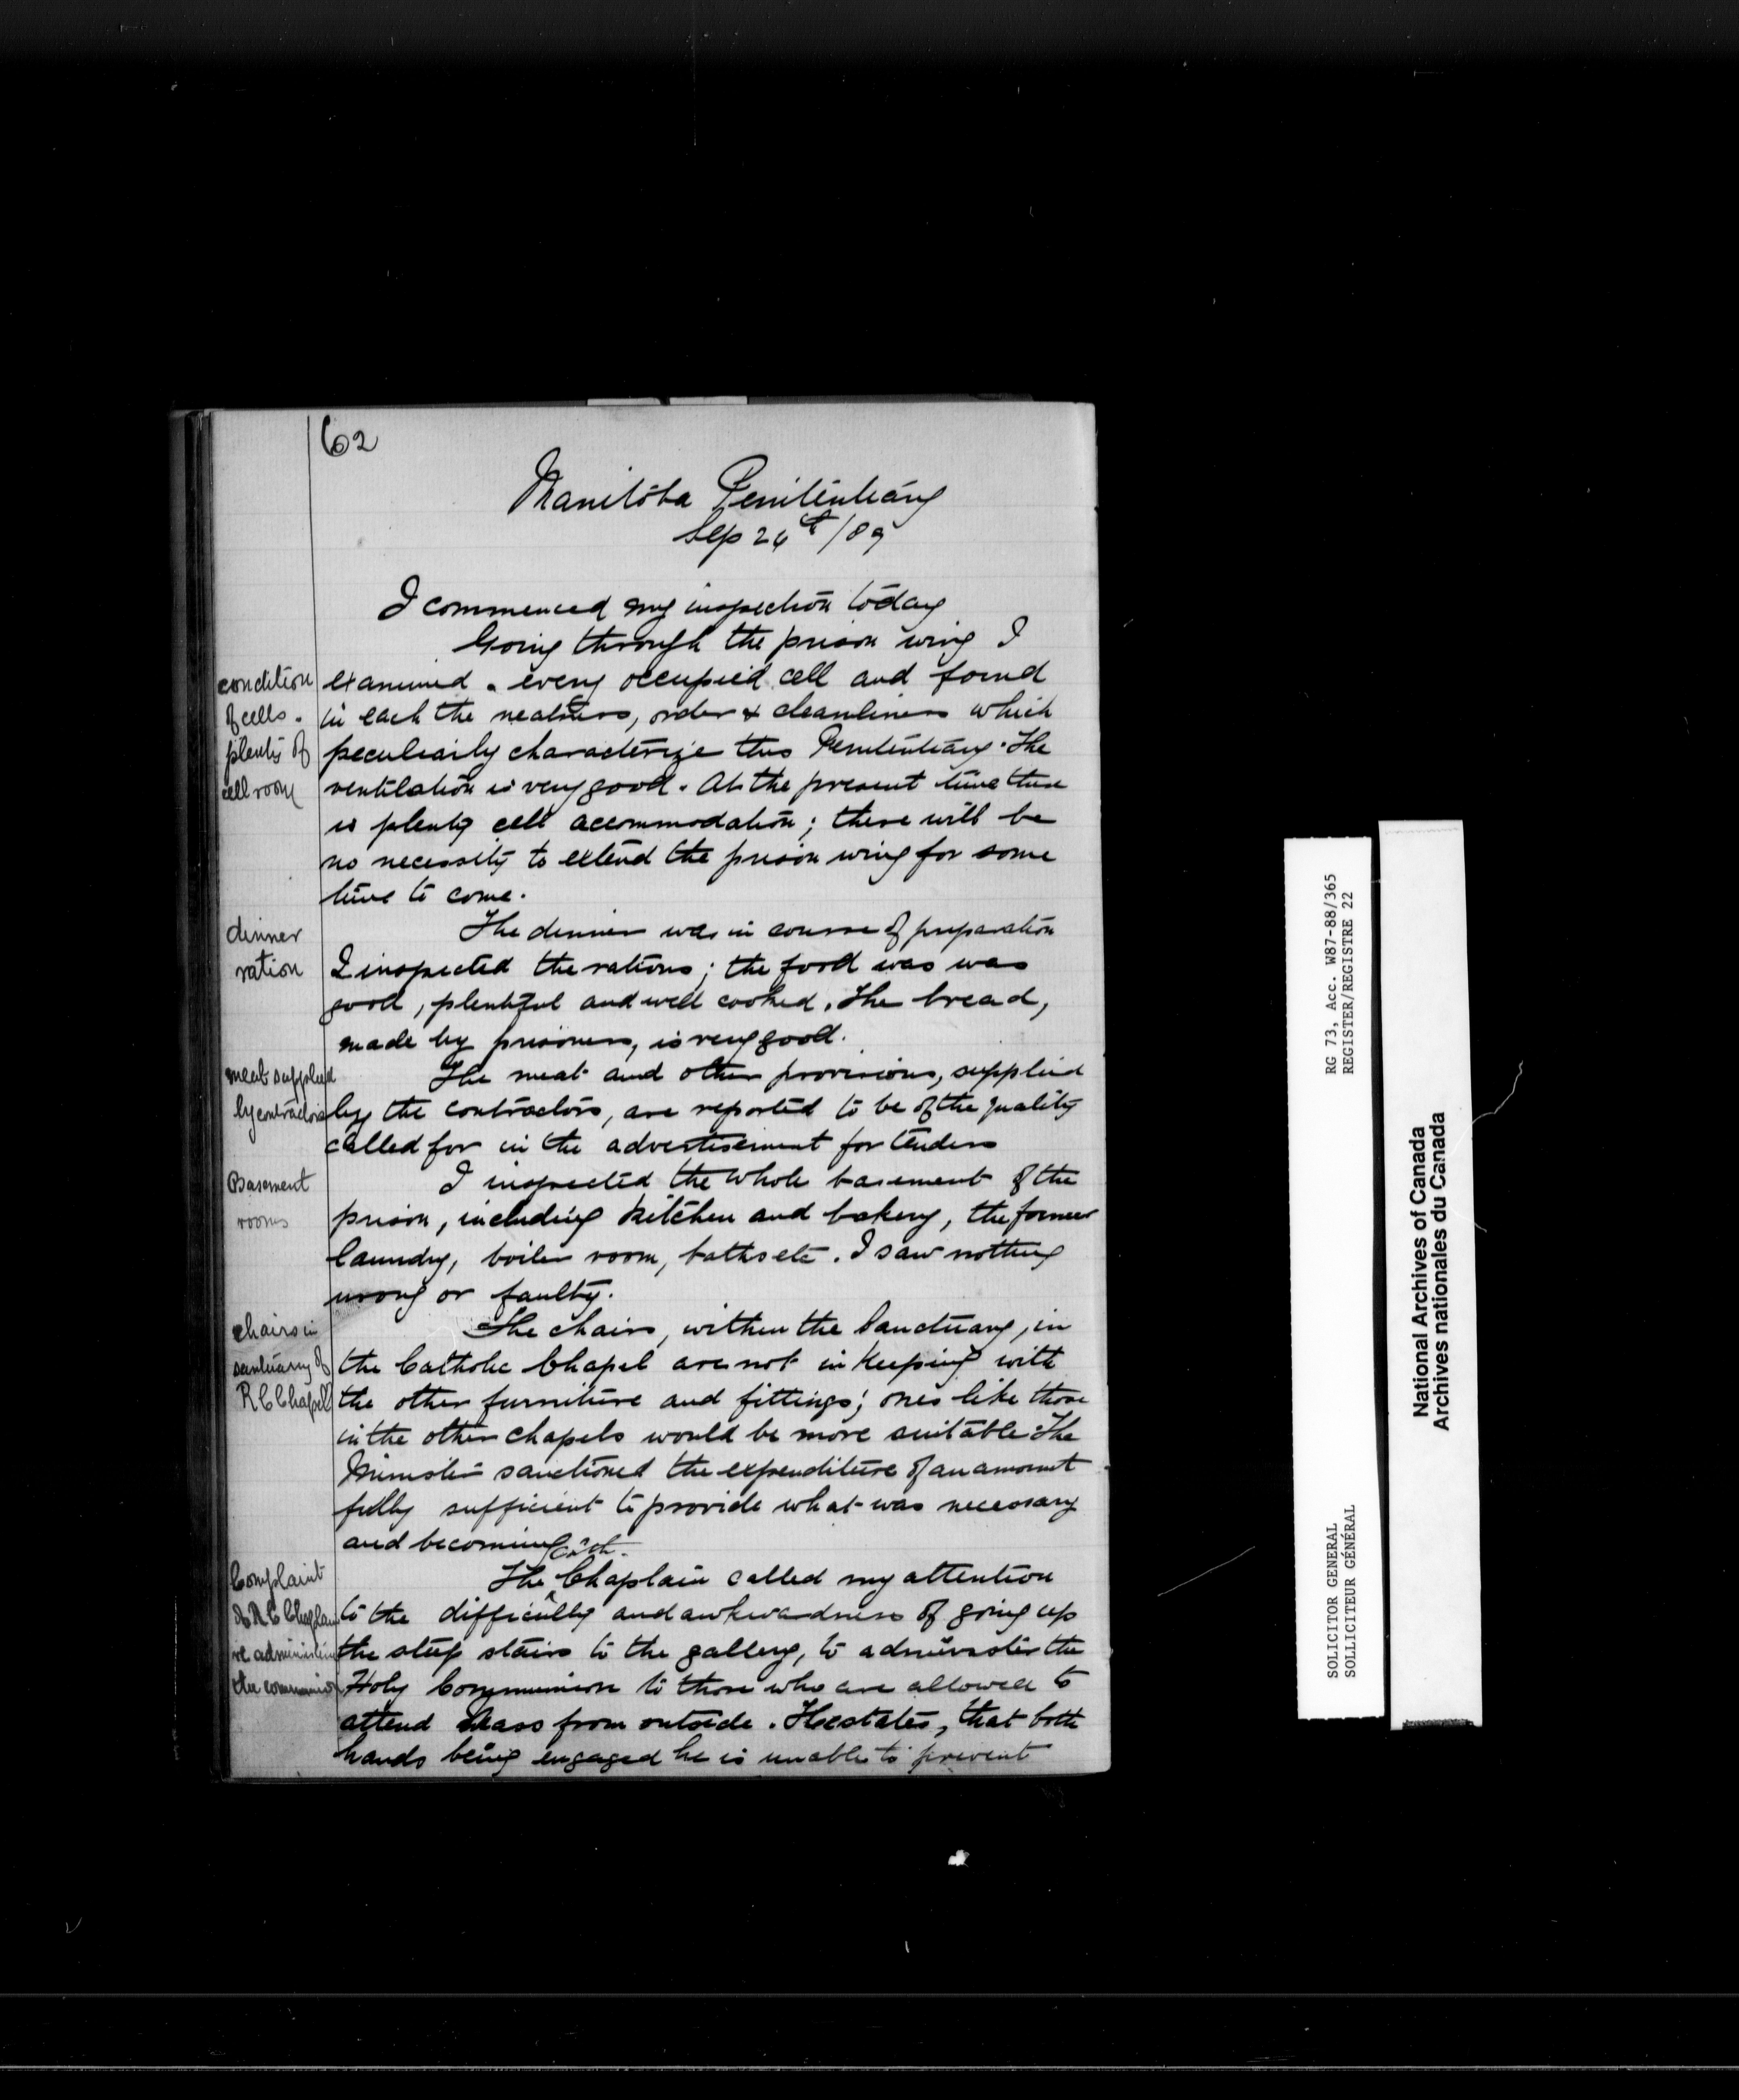 62
Manitoba Penitentiary
Sep 26th/89
I commenced my inspection today
Going through the prison wing I
condition
of cells.
plenty of
cell room
examined . every occupied cell and found
in each the neatness, order & cleanliness which
peculiarily characterize this Penitentiary. The
ventilation is very good. At the present time there
is plenty cell accommodation; there will be
no necessity to extend the prison wing for some
time to come.
dinner
ration
The dinner was in course of preparation
I inspected the rations; the food was was
good, plentiful and well cooked. The bread,
made by prisoners, is very good.
meat supplied
by contractors
The meat and other provisions, supplied
by the contractors, are reported to be of the quality
called for in the advertisement for tenders
Basement
rooms
I inspected the whole basement of the
prison, including kitchen and bakery, the former
laundry, boiler room, baths etc. I saw nothing
wrong or faulty.
chairs in
santuary of
R C Chapel
The chairs, within the Sanctuary, in
the Catholic Chapel are not in keeping with
the other furniture and fittings; ones like those
in the other chapels would be more suitable. The
Minister sanctioned the expenditure of an amount
fully sufficient to provide what was necessary
and becoming
Complaint
of R C Chaplain
re administering
the communion
The Cath. Chaplain called my attention
to the difficulty and awkwardness of going up
the steep stairs to the gallery, to administer the
Holy Communion to those who are allowed to
attend Mass from outside. He states, that both
hands being engaged he is unable to prevent
RG 73, Acc. W87-88/365
REGISTER/REGISTRE 22
SOLICITOR GENERAL
SOLLICITEUR GÉNÉRAL
National Archives of Canada
Archives nationales du Canada